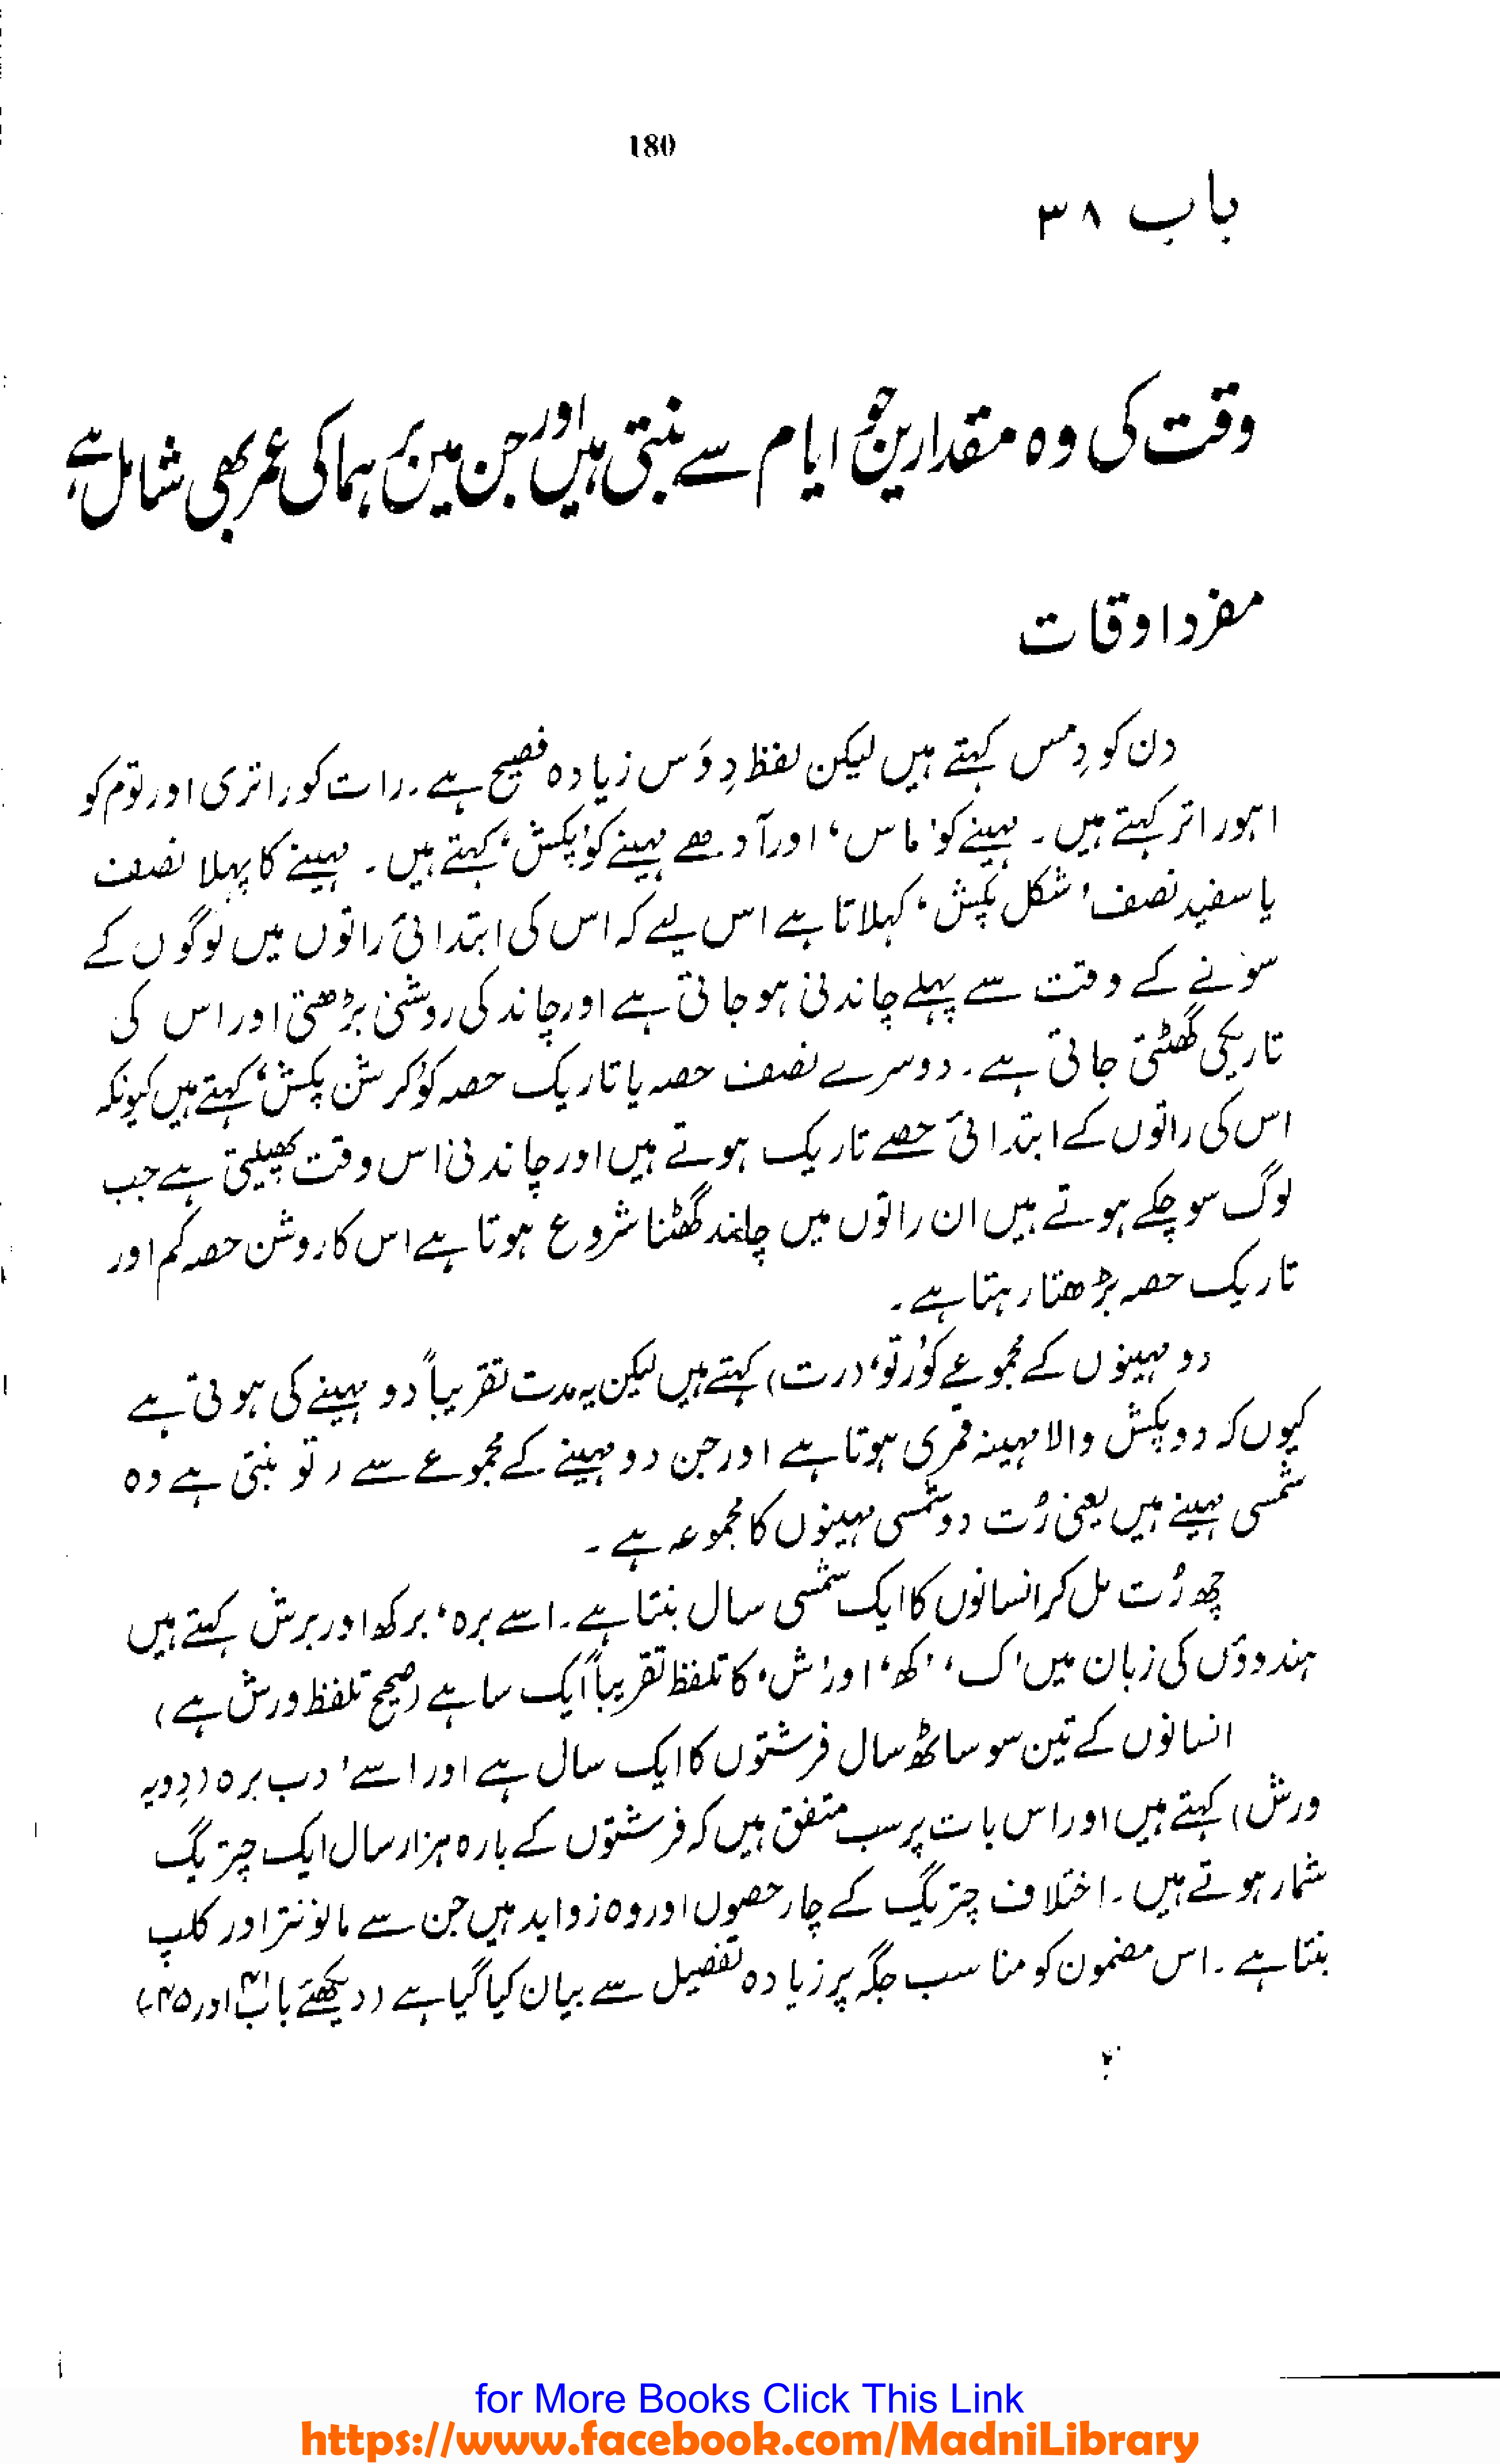 180
باب ۳۸
وقت کی وہ مقداریں جو ایام سے بنتی ہیں اور جن میں برہما کی عمر بھی شامل ہے
مفرد اوقات
دن کو دِمس کہتے ہیں لیکن لفظ دِوَس زیادہ فصیح ہے۔ رات کو راتری اور توم کو
اہوراتر کہتے ہیں۔ مہینے کو 'ماس' اور آدھے مہینے کو 'پکش' کہتے ہیں۔ مہینے کا پہلا نصف
یا سفید نصف 'شکل پکش' کہلاتا ہے اس لیے کہ اس کی ابتدائی راتوں میں لوگوں کے
سونے کے وقت سے پہلے چاندنی ہو جاتی ہے اور چاند کی روشنی بڑھتی اور اس کی
تاریکی گھٹتی جاتی ہے۔ دوسرے نصف حصہ یا تاریک حصہ کو 'کرشن پکش' کہتے ہیں کیونکہ
اس کی راتوں کے ابتدائی حصے تاریک ہوتے ہیں اور چاندنی اس وقت پھیلتی ہے جب
لوگ سو چکے ہوتے ہیں ان راتوں میں چاند گھٹنا شروع ہوتا ہے اس کا روشن حصہ کم اور
تاریک حصہ بڑھتا رہتا ہے۔
دو مہینوں کے مجموعے کو 'رتو' (رت) کہتے ہیں لیکن یہ مدت تقریباً دو مہینے کی ہوتی ہے
کیوں کہ دو پکش والا مہینہ قمری ہوتا ہے اور جن دو مہینے کے مجموعے سے رتو بنتی ہے وہ
شمسی مہینے ہیں یعنی رُت دو شمسی مہینوں کا مجموعہ ہے۔
چھ رُت مل کر انسانوں کا ایک شمسی سال بنتا ہے۔ اسے برہ، برکھ اور برش کہتے ہیں
ہندوؤں کی زبان میں 'ک'، 'کھ' اور 'ش' کا تلفظ تقریباً ایک سا ہے (صحیح تلفظ ورش ہے)
انسانوں کے تین سو ساٹھ سال فرشتوں کا ایک سال ہے اور اسے 'دب برہ (دِویہ
ورش) کہتے ہیں اور اس بات پر سب متفق ہیں کہ فرشتوں کے بارہ ہزار سال ایک چتریگ
شمار ہوتے ہیں۔ اختلاف چتریگ کے چار حصوں اور وہ زواید ہیں جن سے مانونتر اور کلپ
بنتا ہے۔ اس مضمون کو مناسب جگہ پر زیادہ تفصیل سے بیان کیا گیا ہے (دیکھئے باب ۴۱ اور ۴۵)
for More Books Click This Link
https://www.facebook.com/MadniLibrary